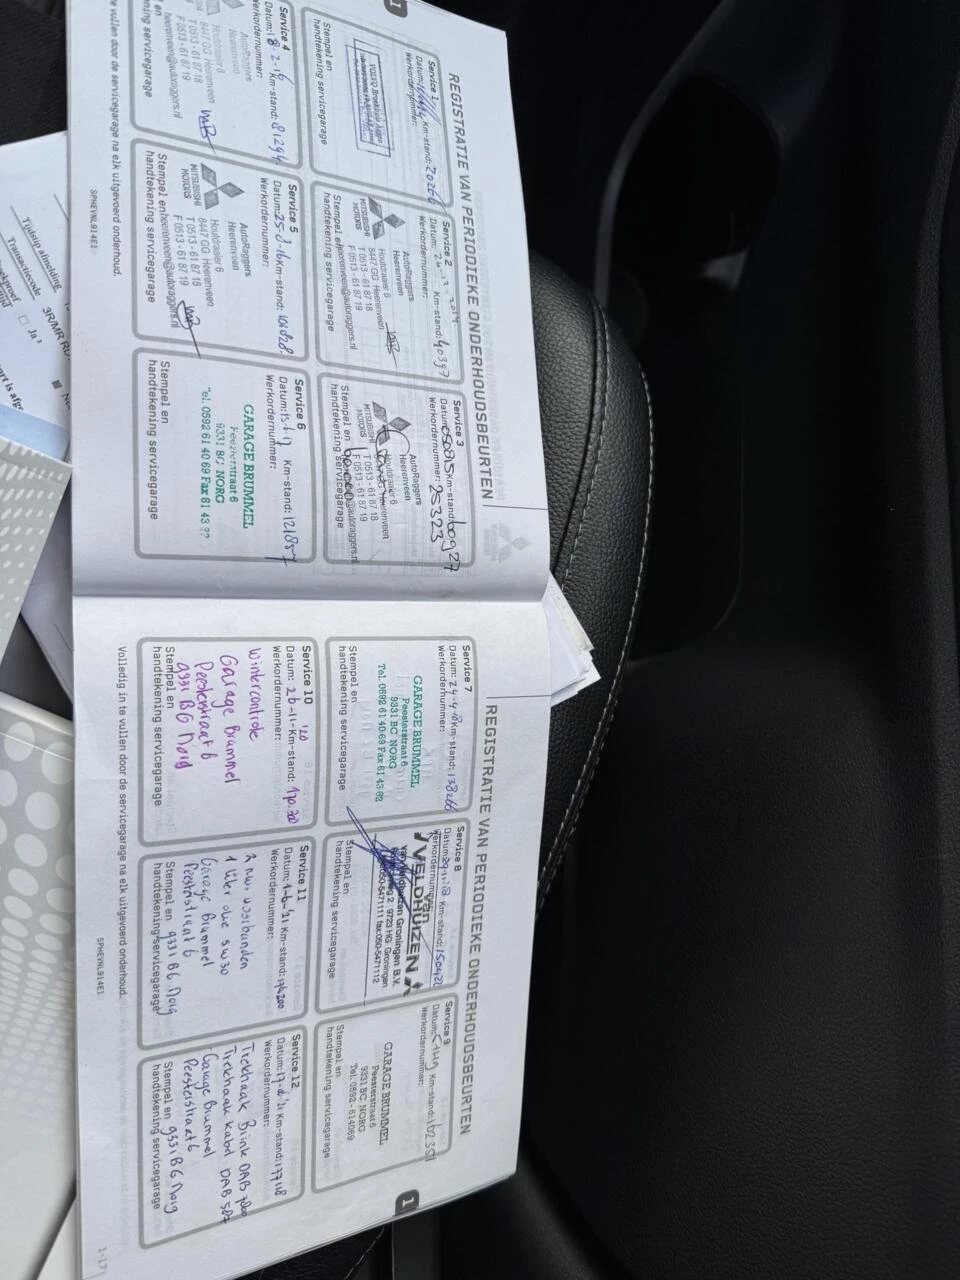 REGISTRATIE VAN PERIODIEKE ONDERHOUDSBEURTEN
1
Service 1
Datum: Km-stand: 20266
Werkordernummer:
VOLVO
Stempel en
handtekening servicegarage
Service 2
Datum: 24- - 2014 Km-stand: 40397
Werkordernummer:
AutoRaggers
Heerenveen
Houtdraaier 6
8447 GG Heerenveen
T 0513 - 61 87 18
F 0513 - 61 87 19
heerenveen@autoraggers.nl
MITSUBISHI
MOTORS
Stempel en
handtekening servicegarage
Service 3
Datum: 050815 Km-stand: 60927
Werkordernummer: 25323
AutoRaggers
Heerenveen
Houtdraaier 6
Heerenveen
T 0513 - 61 87 18
F 0513 - 61 87 19
@autoraggers.nl
MITSUBISHI
MOTORS
Stempel en
handtekening servicegarage
Service 4
Datum: 18-2-16 Km-stand: 81294
Werkordernummer:
AutoRaggers
Heerenveen
Houtdraaier 6
8447 GG Heerenveen
T 0513 - 61 87 18
F 0513 - 61 87 19
heerenveen@autoraggers.nl
en
handtekening servicegarage
Service 5
Datum: 25-8-16 Km-stand: 101828
Werkordernummer:
AutoRaggers
Heerenveen
Houtdraaier 6
8447 GG Heerenveen
T 0513 - 61 87 18
F 0513 - 61 87 19
heerenveen@autoraggers.nl
MITSUBISHI
MOTORS
Stempel en
handtekening servicegarage
Service 6
Datum: 13-6-17 Km-stand: 121857
Werkordernummer:
GARAGE BRUMMEL
Peesterstraat 6
9331 BC NORG
Tel. 0592 61 40 69 Fax 61 43
Stempel en
handtekening servicegarage
te vullen door de servicegarage na elk uitgevoerd onderhoud.
SPHEVNL914E1
REGISTRATIE VAN PERIODIEKE ONDERHOUDSBEURTEN
1
Service 7
Datum: 24-4-18 Km-stand: 138266
Werkordernummer:
GARAGE BRUMMEL
Peesterstraat 6
9331 BC NORG
Tel. 0592 61 40 69 Fax 61 43 82
Stempel en
handtekening servicegarage
Service 8
Datum: 29-11-18 Km-stand: 150422
Werkordernummer:
van
VELDHUIZEN
van Veldhuizen Groningen B.V.
2 9723 HG Groningen
050-5471111 fax:050-5471112
Stempel en
handtekening servicegarage
Service 9
Datum: Km-stand: 162351
Werkordernummer:
GARAGE BRUMMEL
Peesterstraat 6
9331 BC NORG
Tel. 0592 - 614069
Stempel en
handtekening servicegarage
Service 10
Datum: 26-11-'20 Km-stand: 170.300
Werkordernummer:
Wintercontrole
Garage Brummel
Peesterstraat 6
9331 BG Norg
Stempel en
handtekening servicegarage
Service 11
Datum: 1-6-'21 Km-stand: 176200
Werkordernummer:
2 nw. voorbanden
1 liter olie 5w30
Garage Brummel
Peesterstraat 6
9331 BG Norg
Stempel en
handtekening servicegarage
Service 12
Datum: 17-6-'21 Km-stand: 177118
Werkordernummer:
Trekhaak Brink
Trekhaak kabel
Garage Brummel
Peesterstraat 6
9331 BG Norg
Stempel en
handtekening servicegarage
Volledig in te vullen door de servicegarage na elk uitgevoerd onderhoud.
SPHEVNL914E1
1-17
Tijdstip afmelding
Transactiecode
3R/MR
Ja